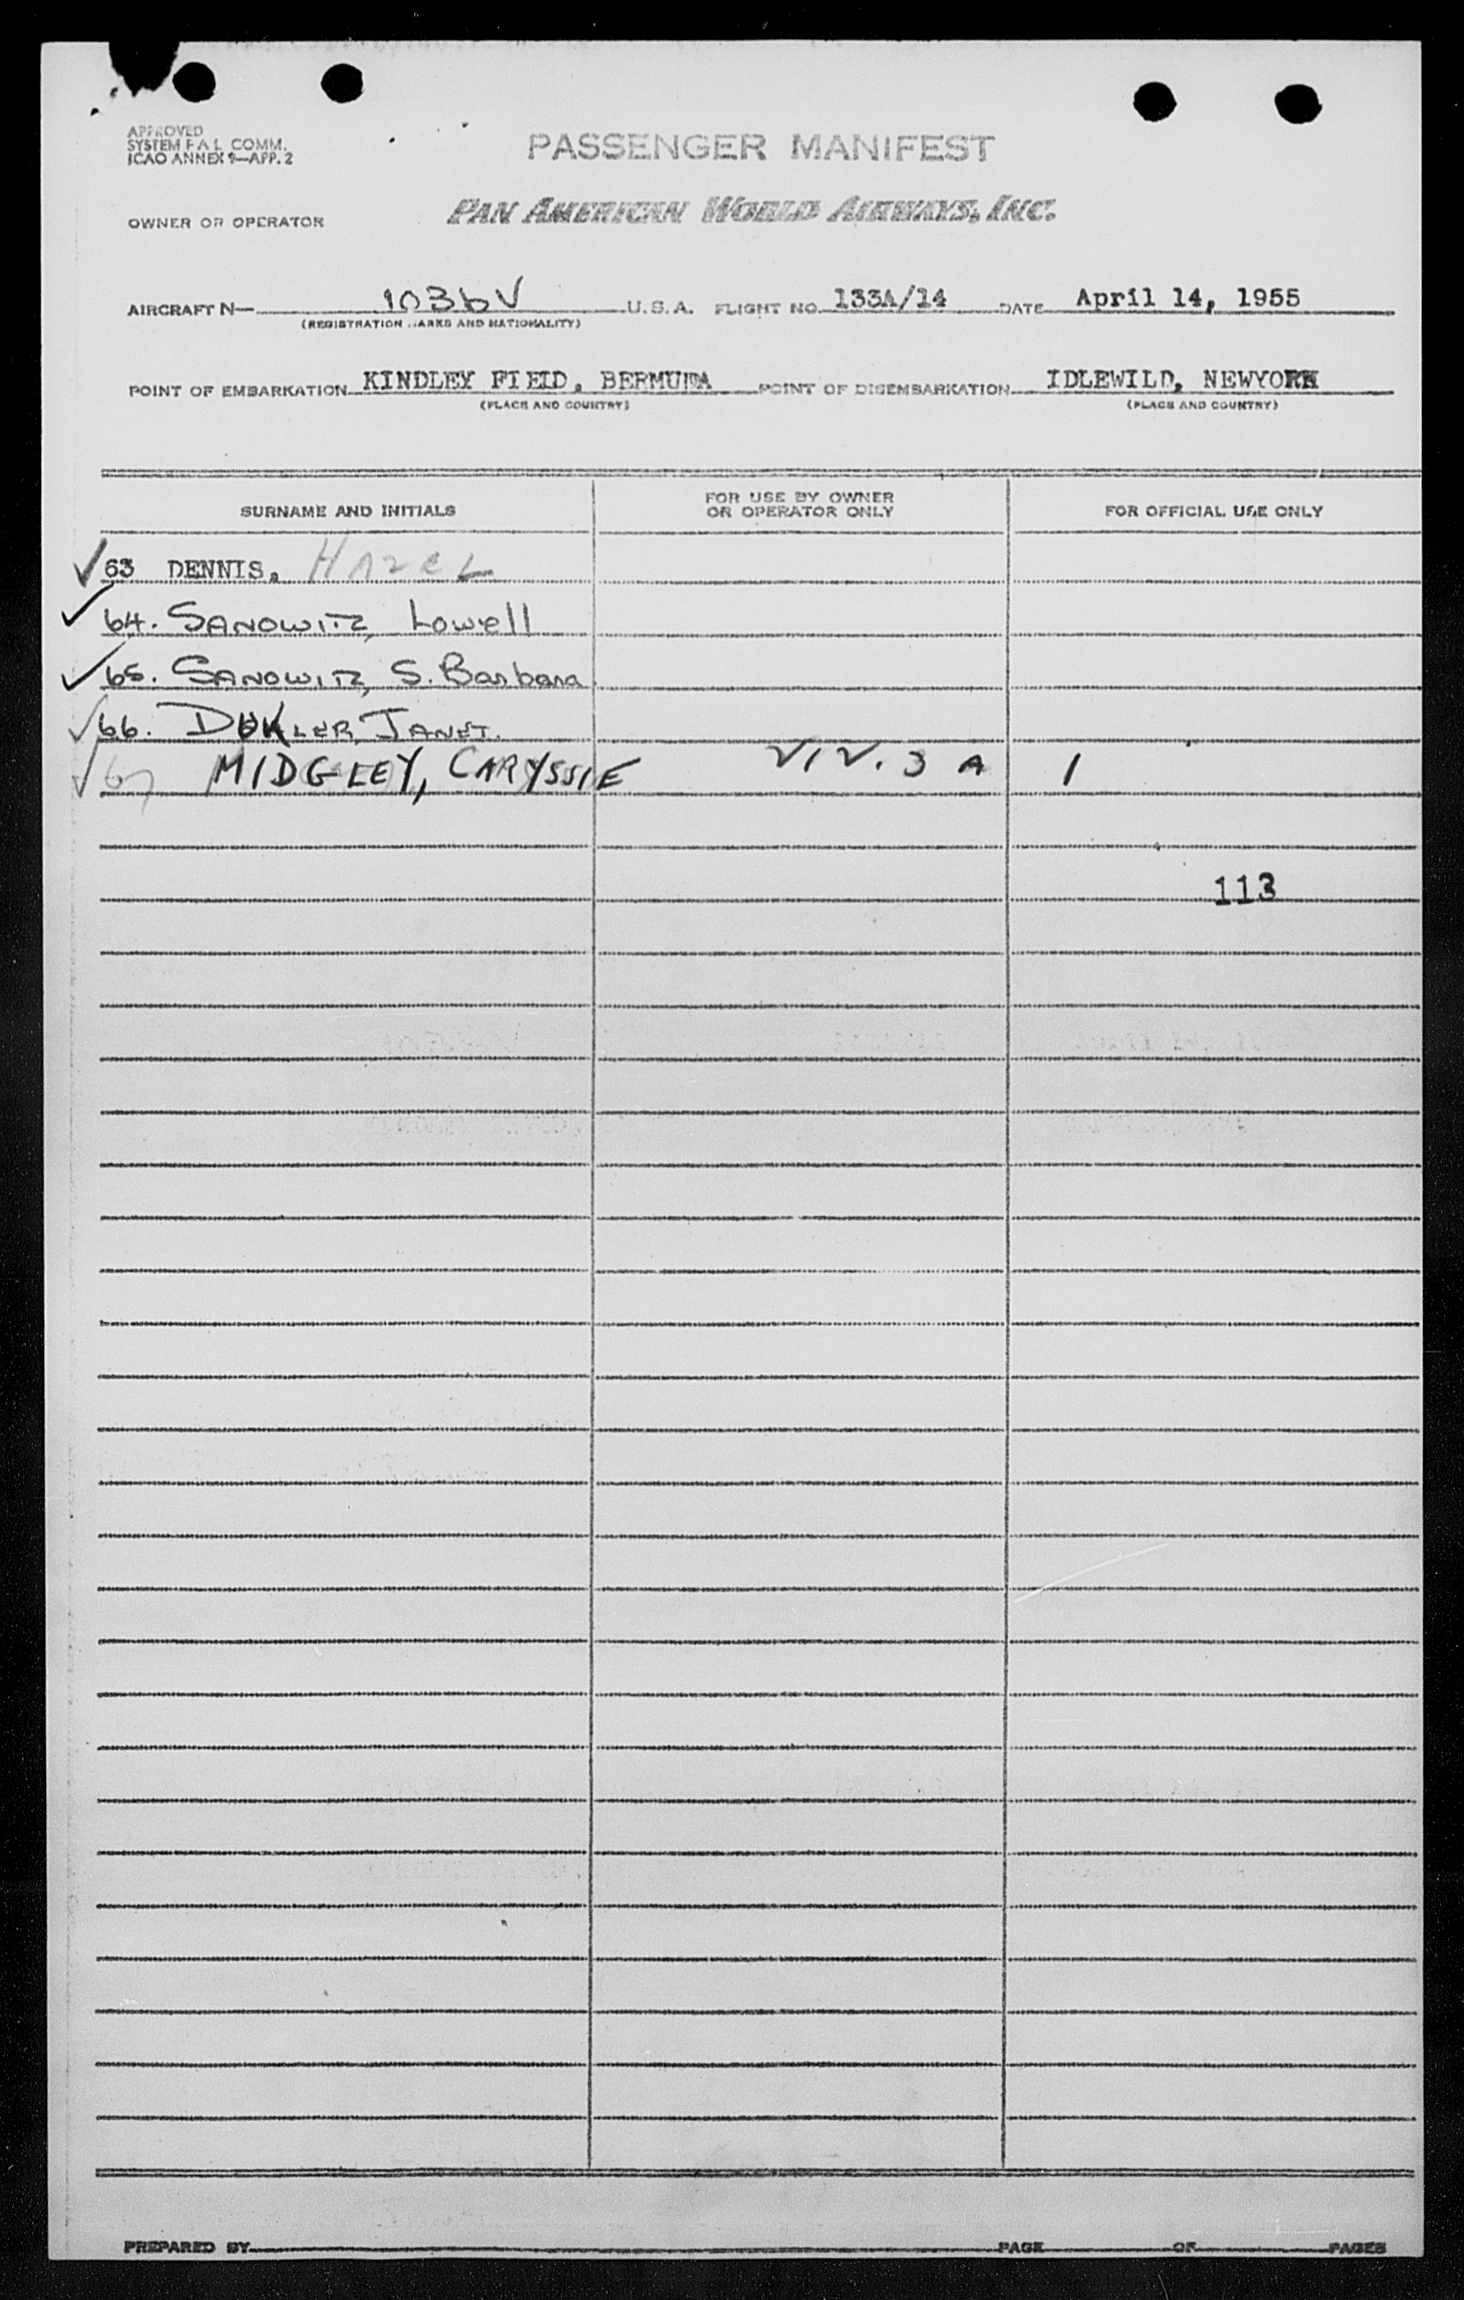 APPROVED
SYSTEM F A L COMM.
ICAO ANNEX 9—APP. 2
PASSENGER MANIFEST
OWNER OR OPERATOR
PAN AMERICAN WORLD AIRWAYS, INC.
AIRCRAFT N— 1036V U.S.A. FLIGHT NO. 133A/14 DATE April 14, 1955
(REGISTRATION MARKS AND NATIONALITY)
POINT OF EMBARKATION KINDLEY FIELD, BERMUDA POINT OF DISEMBARKATION IDLEWILD, NEWYORK
(PLACE AND COUNTRY) (PLACE AND COUNTRY)
SURNAME AND INITIALS
FOR USE BY OWNER
OR OPERATOR ONLY
FOR OFFICIAL USE ONLY
✓ 63 DENNIS, HAZEL
✓ 64. SANOWITZ, Lowell
✓ 65. SANOWITZ, S. Barbara
✓ 66. DUKLER, JANET.
✓ 67 MIDGLEY, CARYSSIE VIV. 3 A 1
113
PREPARED BY PAGE OF PAGES